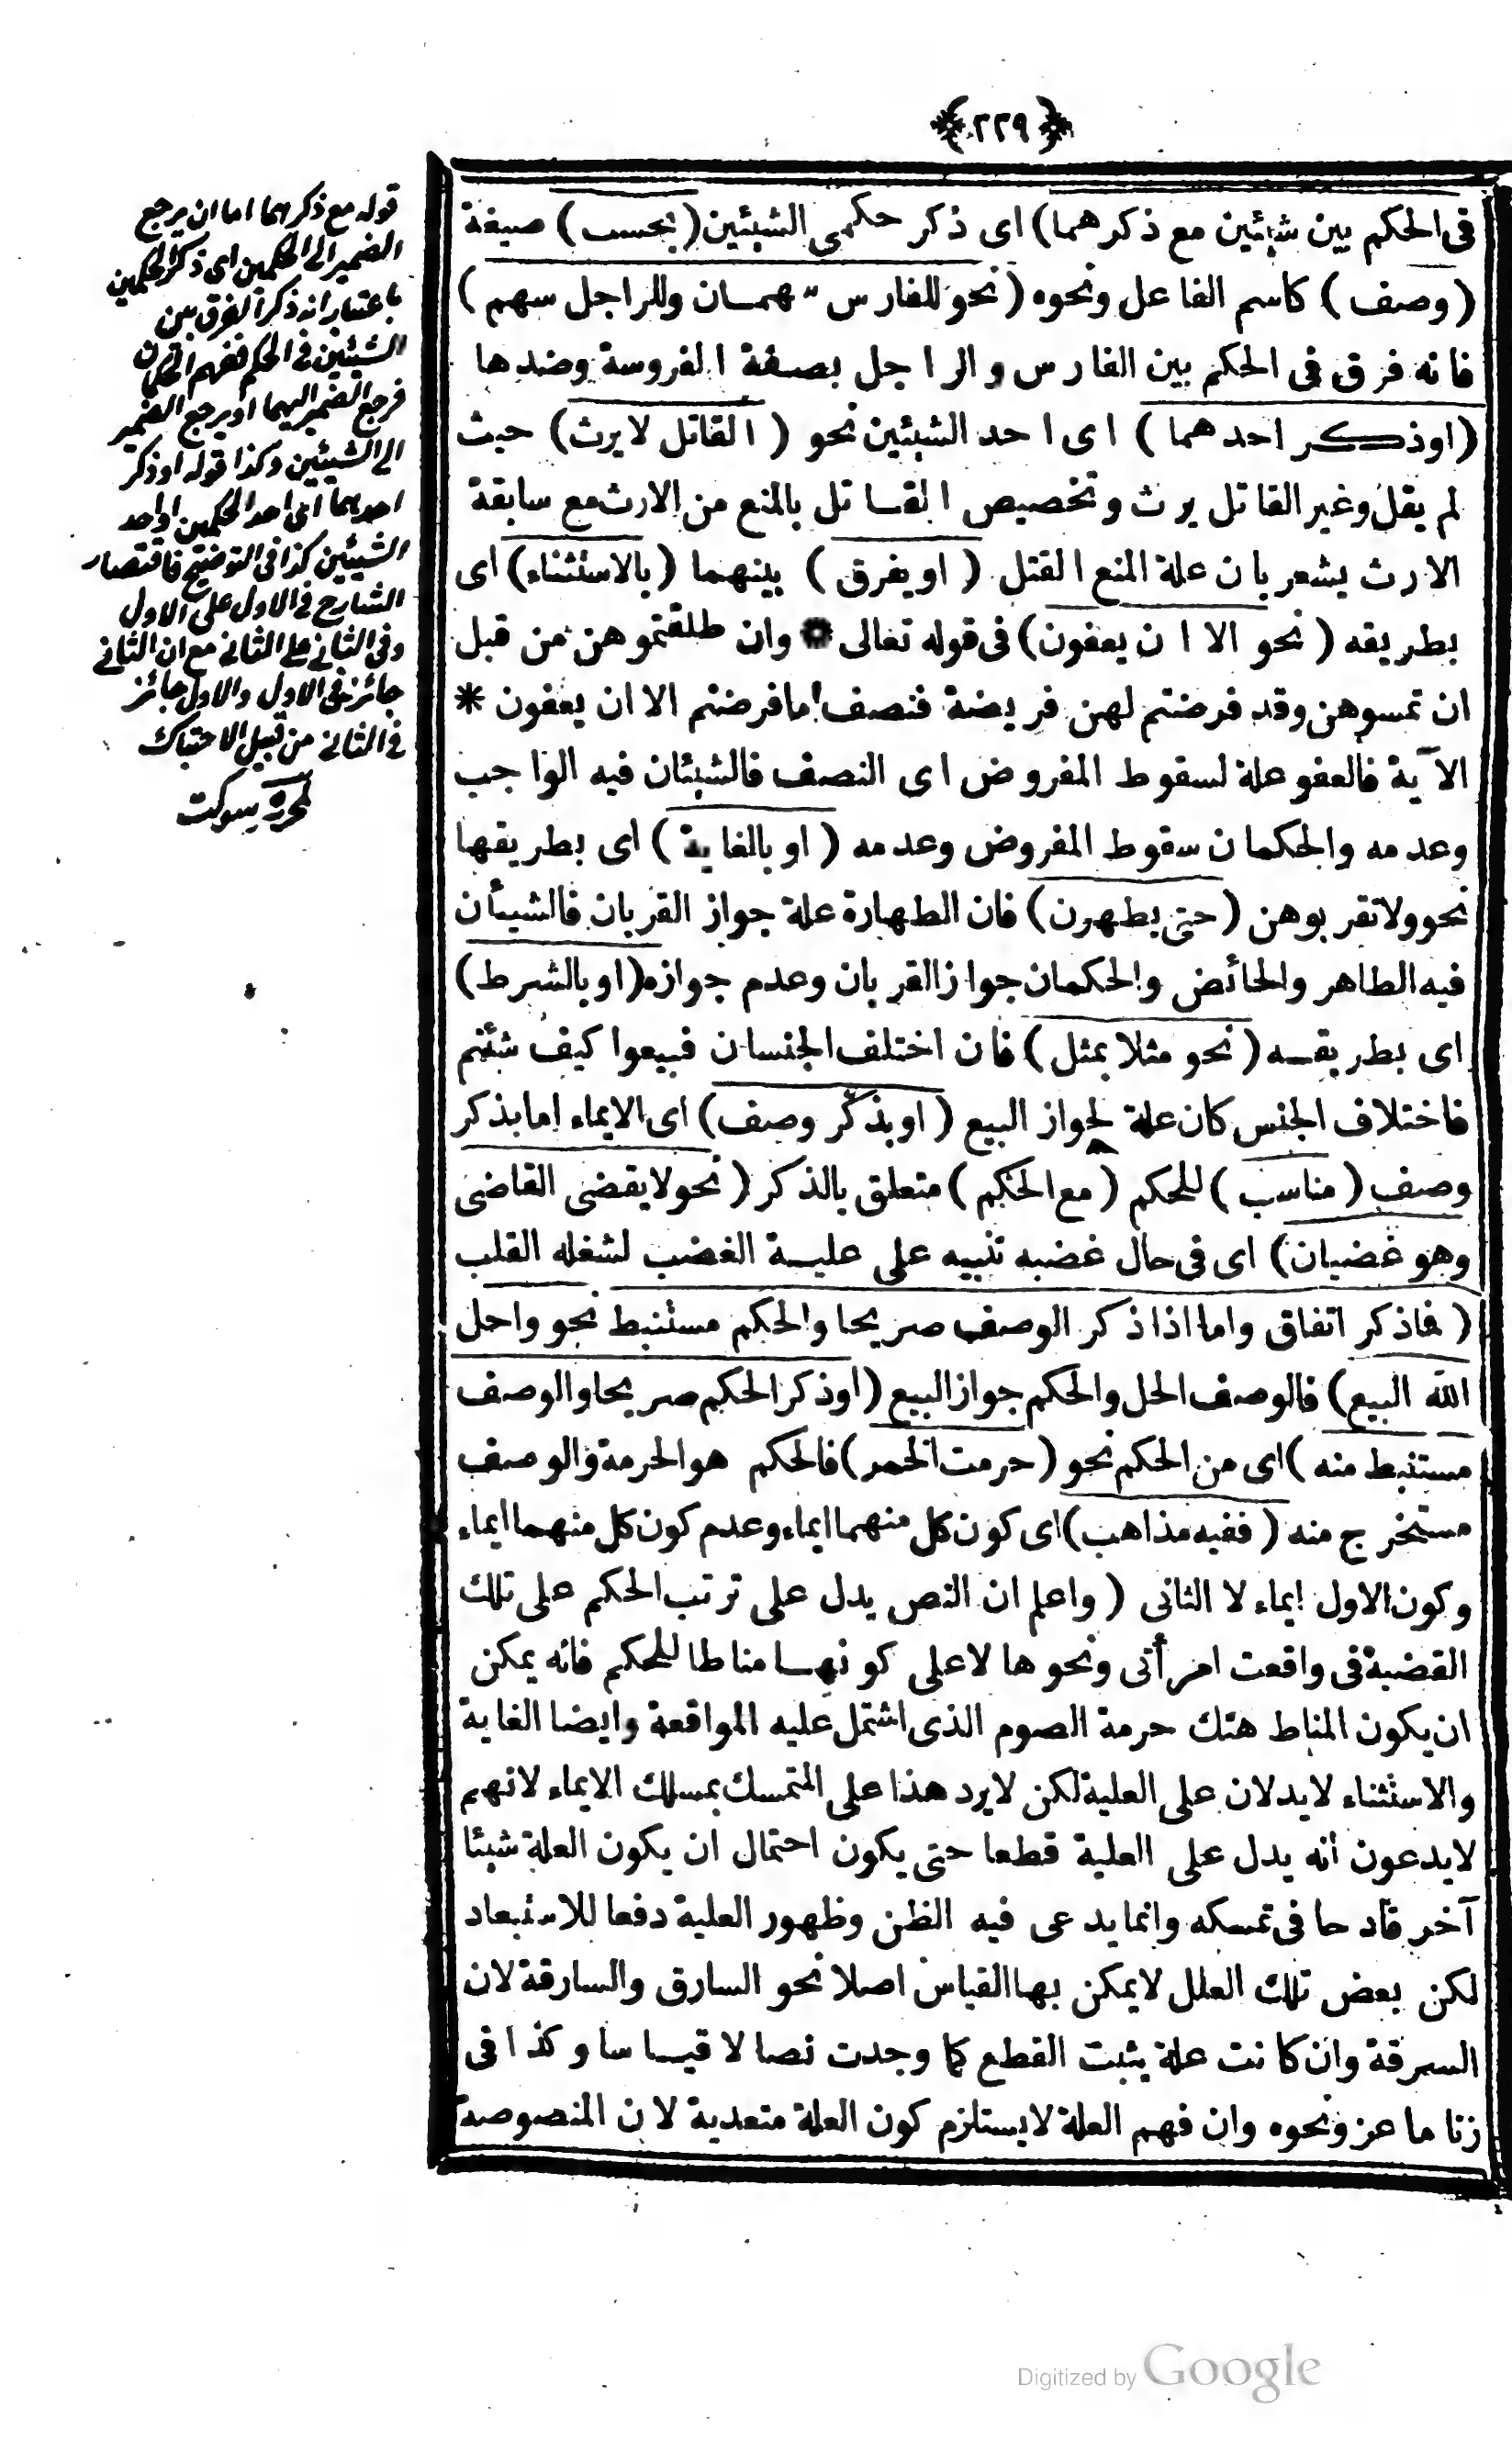 ﴿٢٢٩﴾
فى الحكم بين شيئين مع ذكرهما) اى ذكر حكمى الشيئين (بحسب) صيغة
(وصف) كاسم الفاعل ونحوه (نحو للفارس سهمان وللراجل سهم)
فانه فرق فى الحكم بين الفارس والراجل بصفة الفروسة وضدها
(اوذكر احدهما) اى احد الشيئين نحو (القاتل لايرث) حيث
لم يقل وغير القاتل يرث وتخصيص القاتل بالمنع من الارث مع سابقة
الارث يشعر بان علة المنع القتل (اويفرق) بينهما (بالاستثناء) اى
بطريقه (نحو الا ان يعفون) فى قوله تعالى * وان طلقتموهن من قبل
ان تمسوهن وقد فرضتم لهن فريضة فنصف ما فرضتم الا ان يعفون *
الآية فالعفو علة لسقوط المفروض اى النصف فالشيئان فيه الواجب
وعدمه والحكمان سقوط المفروض وعدمه (او بالغاية) اى بطريقها
نحو ولاتقربوهن (حتى يطهرن) فان الطهارة علة جواز القربان فالشيئان
فيه الطاهر والحائض والحكمان جواز القربان وعدم جوازه (او بالشرط)
اى بطريقه (نحو مثلا بمثل) فان اختلف الجنسان فبيعوا كيف شئتم
فاختلاف الجنس كان علة لجواز البيع (او بذكر وصف) اى الايماء اما بذكر
وصف (مناسب) للحكم (مع الحكم) متعلق بالذكر (نحو لايقضى القاضى
وهو غضبان) اى فى حال غضبه تنبيه على علية الغضب لشغله القلب
(فاذكر اتفاق واما اذا ذكر الوصف صريحا والحكم مستنبط نحو واحل
الله البيع) فالوصف الحل والحكم جواز البيع (اوذكر الحكم صريحا والوصف
مستنبط منه) اى من الحكم نحو (حرمت الخمر) فالحكم هو الحرمة والوصف
مستخرج منه (ففيه مذاهب) اى كون كل منهما ايماء وعدم كون كل منهما ايماء
وكون الاول ايماء لا الثانى (واعلم ان النص يدل على ترتب الحكم على تلك
القضية فى واقعت امرأتى ونحوها لا على كونها مناطا للحكم فانه يمكن
ان يكون المناط هتك حرمة الصوم الذى اشتمل عليه المواقعة وايضا الغاية
والاستثناء لايدلان على العلية لكن لايرد هذا على المتمسك بمسلك الايماء لانهم
لايدعون انه يدل على العلية قطعا حتى يكون احتمال ان يكون العلة شيئا
آخر قادحا فى تمسكه وانما يدعى فيه الظن وظهور العلية دفعا للاستبعاد
لكن بعض تلك العلل لايمكن بها القياس اصلا نحو السارق والسارقة لان
السرقة وان كانت علة يثبت القطع كما وجدت نصا لا قياسا وكذا فى
زنا ماعز ونحوه وان فهم العلة لايستلزم كون العلة متعدية لان المنصوصة
قوله مع ذكرهما اما ان يرجع
الضمير الى الحكمين اى ذكر الحكمين
باعتبار انه ذكر الفرق بين
الشيئين فى الحكم ففهم الحكمان
فرجع الضمير اليهما او يرجع الضمير
الى الشيئين وكذا قوله اوذكر
احدهما اى احد الحكمين او احد
الشيئين كذا فى التوضيح فاقتصار
الشارح فى الاول على الاول
وفى الثانى على الثانى مع ان الثانى
جائز فى الاول والاول جائز
فى الثانى من قبيل الاحتباك
Digitized by Google